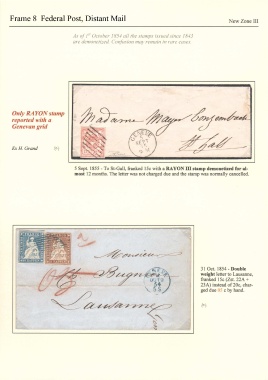 Frame 8 Federal Post, Distant Mail
New Zone III
As of 1st October 1854 all the stamps issued since 1843
are demonetized. Confusion may remain in rare cases
Only RAYON stamp
reported with a
Genevan grid
Ex H. Grand
Madame Mayor
St Gall
GENEVE
5 Sept. 1855 - To St-Gall, franked 15c with a RAYON III stamp demonetized for al-
most 12 months. The letter was not charged due and the stamp was normally cancelled.
31 Oct. 1854 - Double
weight letter to Lausanne,
franked 15c (Zst. 22A +
23A) instead of 20c, char-
ged due 05 c by hand.
Monsieur
Bugnion
Lausanne